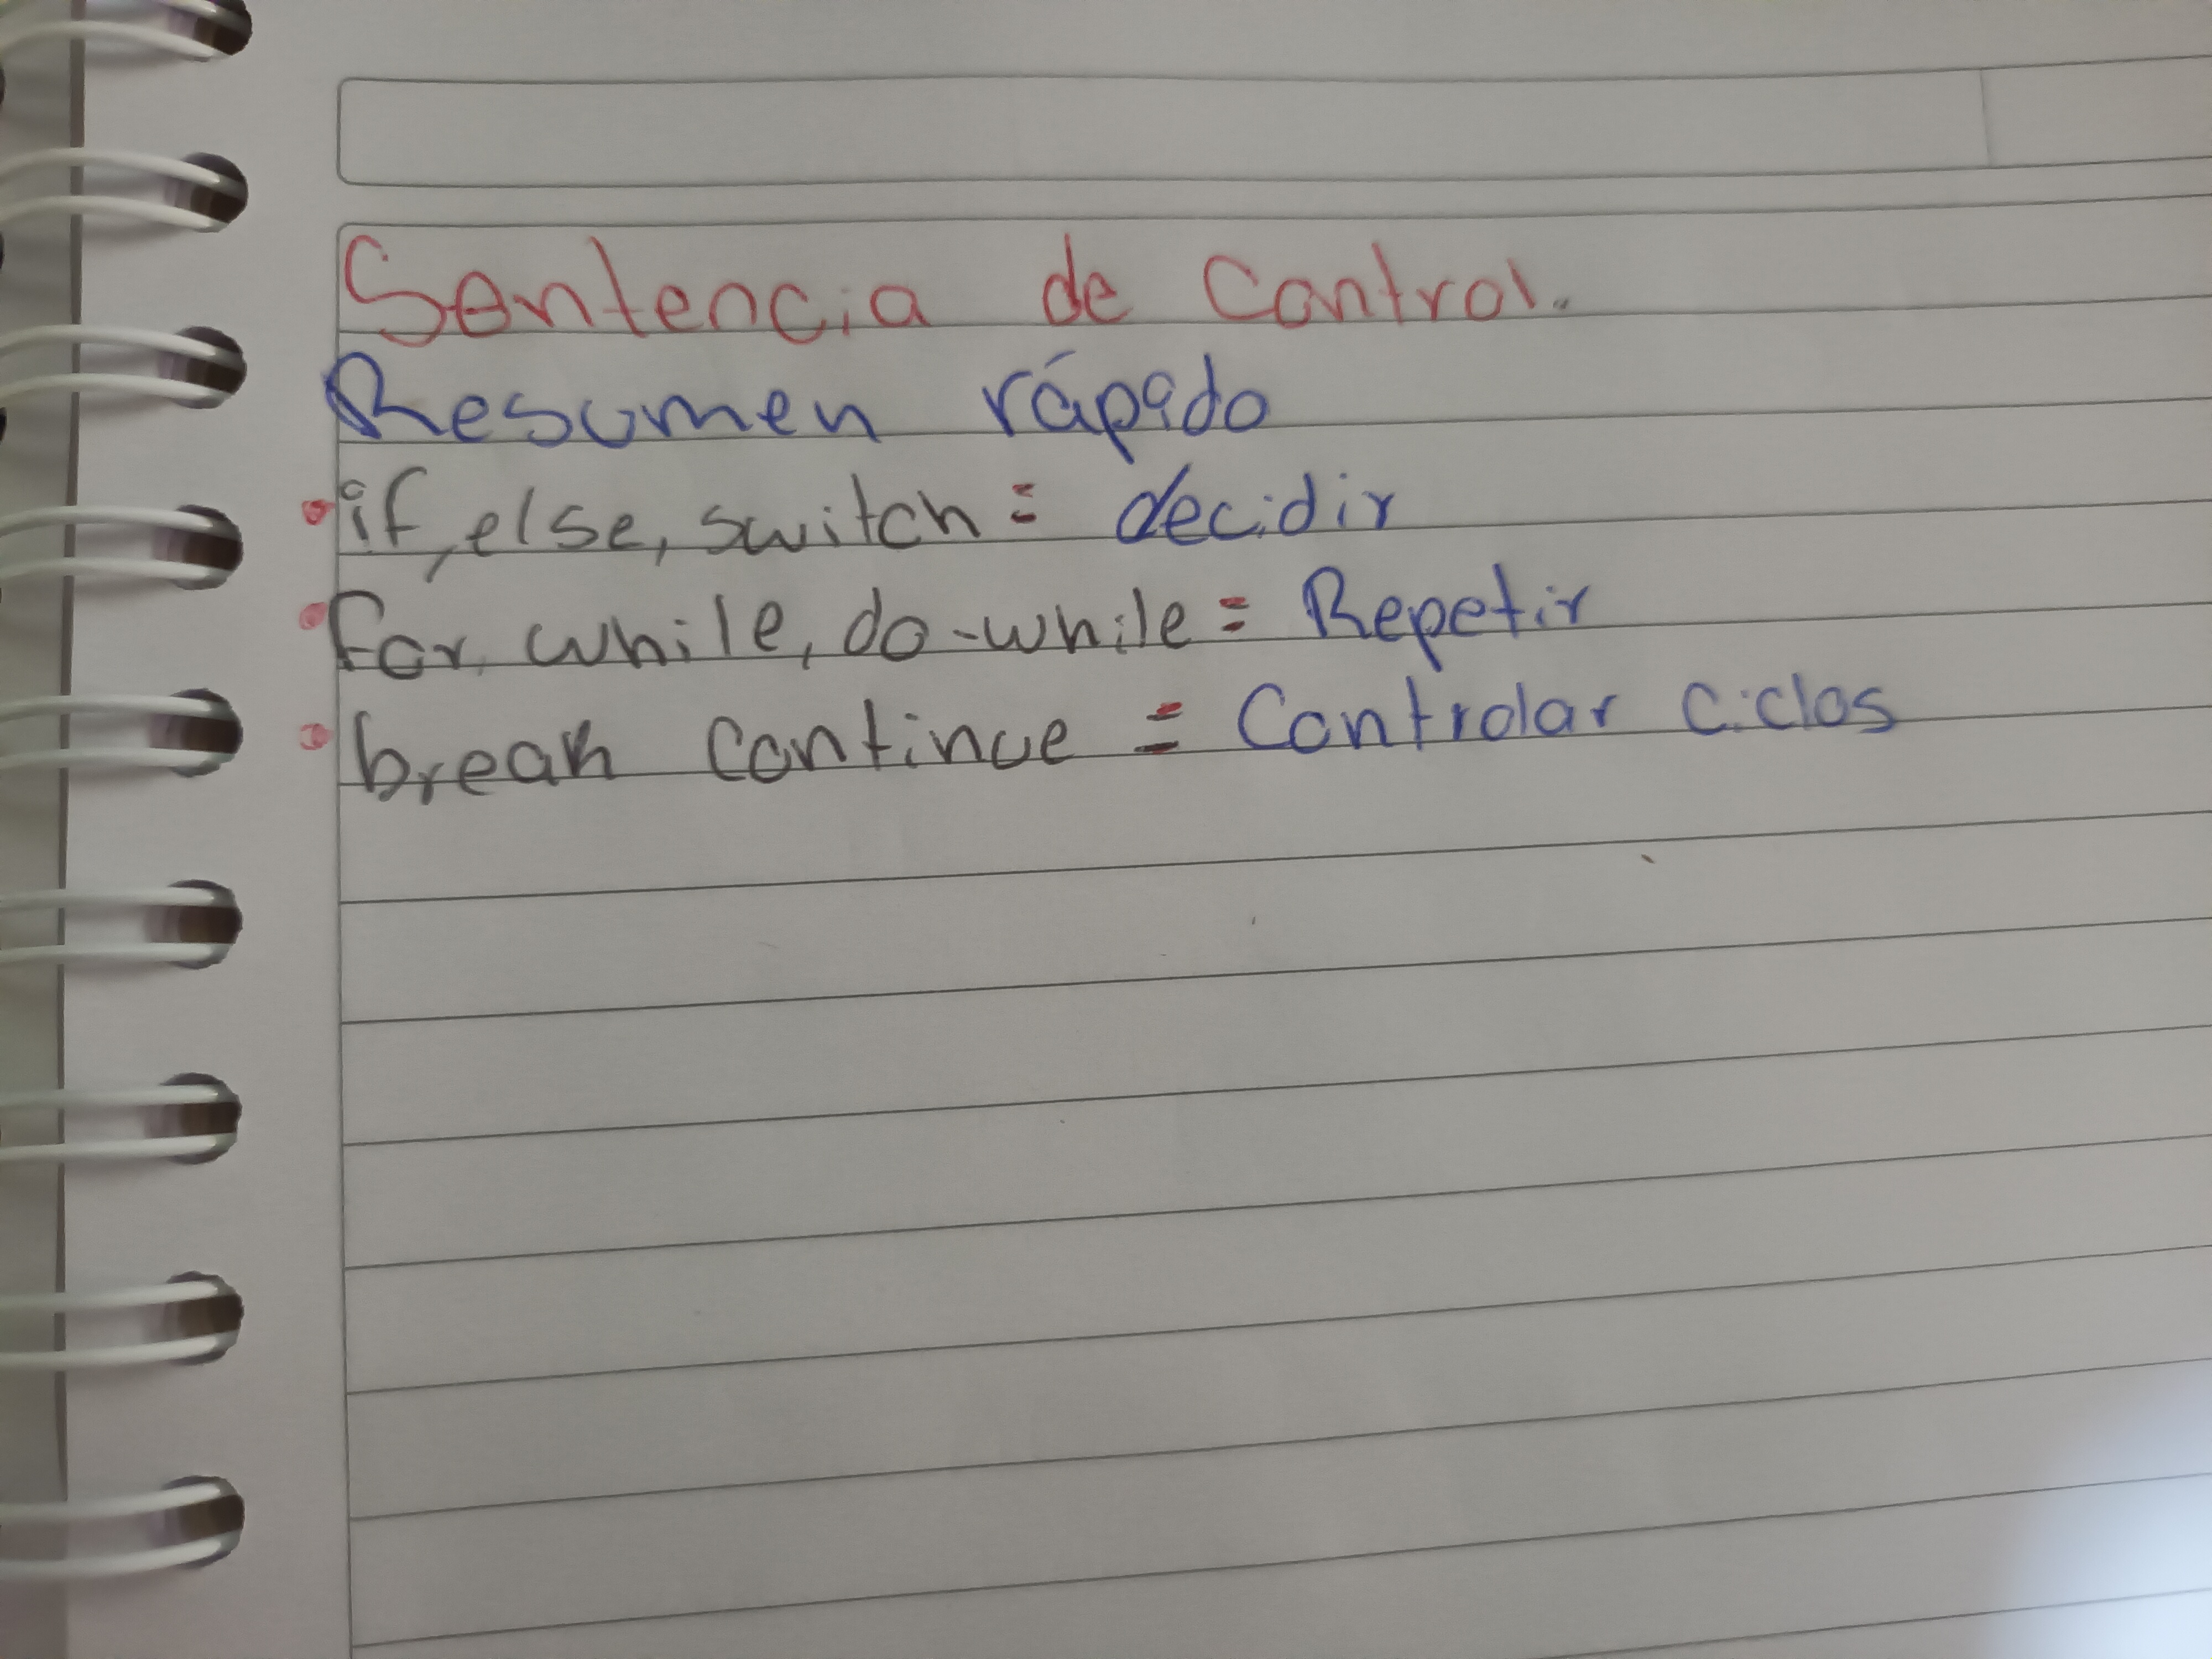 Sentencia de Control.
Resumen rápido
• if, else, switch = decidir
• for, while, do-while = Repetir
• break continue = Controlar ciclos